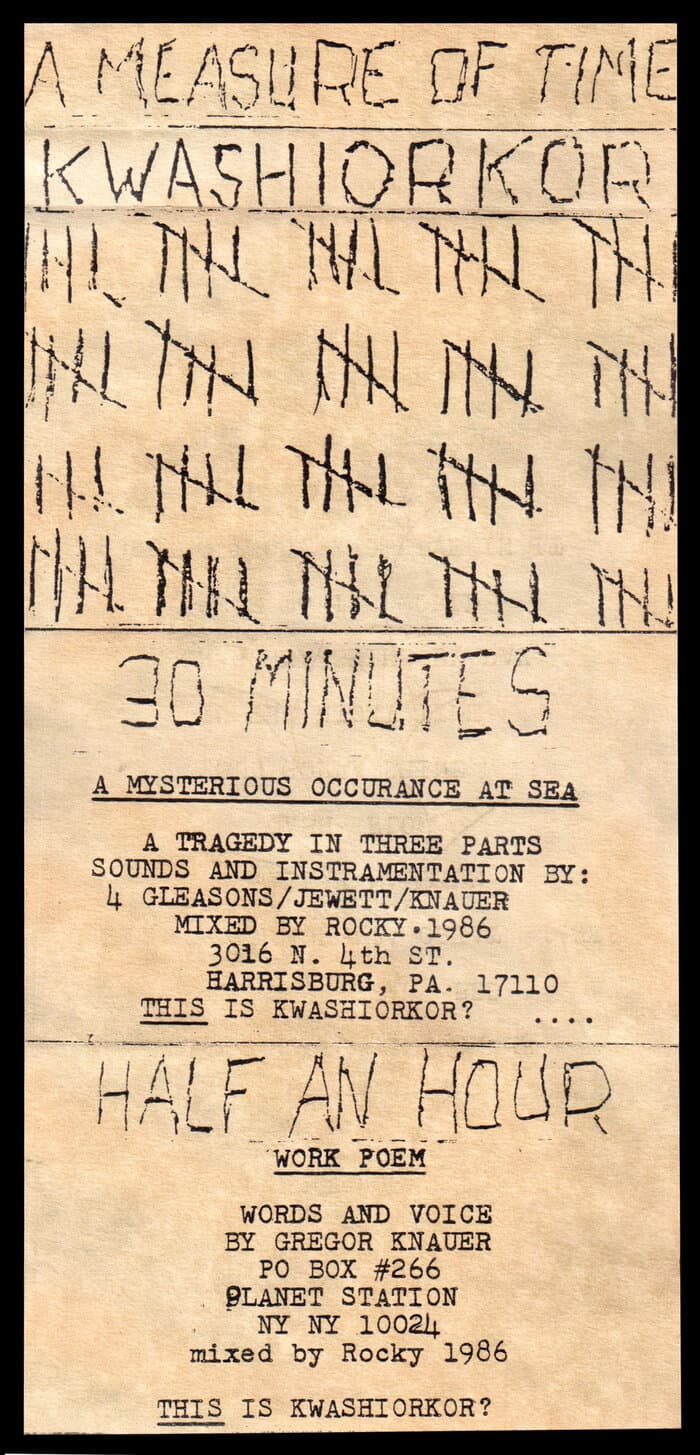 A MEASURE OF TIME
KWASHIORKOR
30 MINUTES
A MYSTERIOUS OCCURANCE AT SEA
A TRAGEDY IN THREE PARTS
SOUNDS AND INSTRAMENTATION BY:
4 GLEASONS/JEWETT/KNAUER
MIXED BY ROCKY·1986
3016 N. 4th ST.
HARRISBURG, PA. 17110
THIS IS KWASHIORKOR? ....
HALF AN HOUR
WORK POEM
WORDS AND VOICE
BY GREGOR KNAUER
PO BOX #266
PLANET STATION
NY NY 10024
mixed by Rocky 1986
THIS IS KWASHIORKOR?